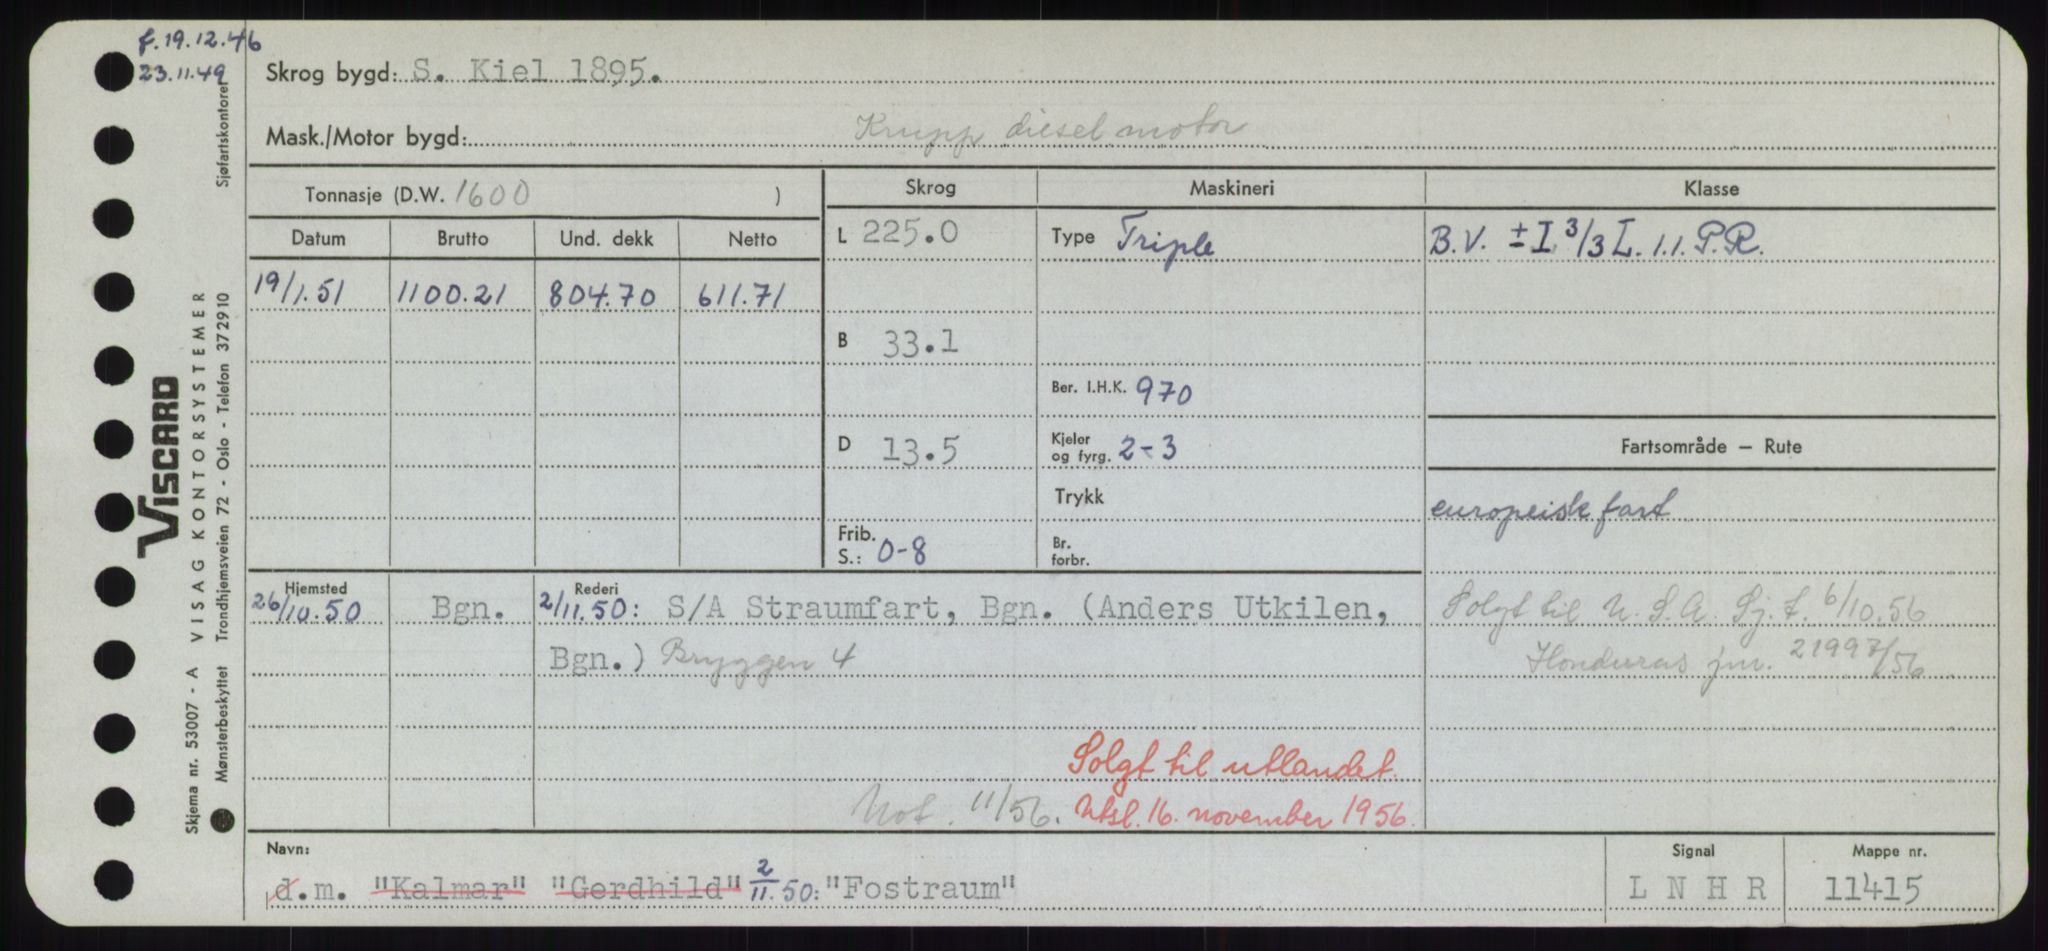 f. 19.12.46
23.11.49
Skrog bygd: S. Kiel 1895.
Mask./Motor bygd: Krupp dieselmotor
Tonnasje (D.W. 1600 )
Skrog Maskineri Klasse
Datum Brutto Und. dekk Netto
L 225.0 Type Triple B.V. ± I 3/3 L. 1.1. P.R.
19/1.51 1100.21 804.70 611.71
B 33.1
Ber. I.H.K. 970
D 13.5 Kjeler og fyrg. 2-3
Fartsområde — Rute
Trykk
europeisk fart
Frib. S.: 0-8
Br. forbr.
Hjemsted Rederi
26/10.50 Bgn. 2/11.50: S/A Straumfart, Bgn. (Anders Utkilen,
Bgn.) Bryggen 4
Solgt til U.S.A. Sj.f. 6/10.56
Honduras jnr. 21997/56
Solgt til utlandet.
Not. 11/56. Utsl. 16. november 1956.
Navn: Signal Mappe nr.
d.m. "Kalmar" "Gerdhild" 2/11.50: "Fostraum" L N H R 11415
Sjøfartskontoret
VISCARD
VISAG KONTORSYSTEMER
Trondhjemsveien 72 - Oslo - Telefon 372910
Skjema nr. 53007 - A
Mønsterbeskyttet